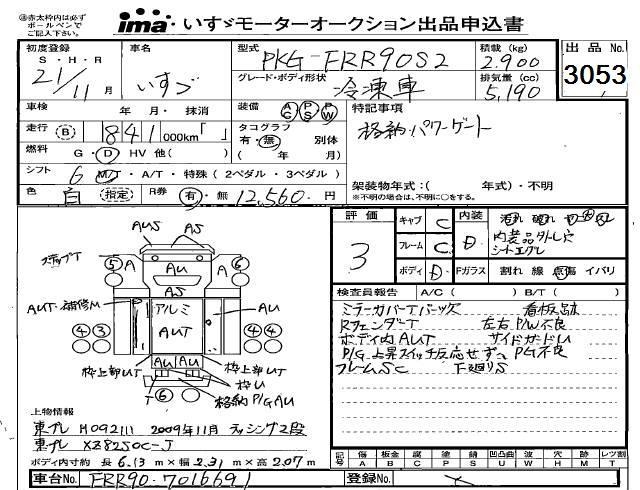 ㊟赤太枠内は必ず
ボールペンで
ご記入下さい。
ima いすゞモーターオークション出品申込書
初度登録 車名 型式 PKG-FRR90S2 積載 (kg) 2,900 出品 No.
S・H・R 21 / 11 月 いすゞ グレード・ボディ形状 冷凍車 排気量 (cc) 5,190 3053
車検 年 月・ 抹消 装備 AC PS PW 特記事項
走行 (B) 841 000km「 」 タコグラフ 有・無 別体 格納パワーゲート
燃料 G・D HV 他( ) ( 年 月)
シフト 6 M/T・A/T・特殊 (2ペダル・3ペダル) 架装物年式:( 年式)・不明
色 白 (指定) R券 有・無 12,560円 ※不明の場合は、不明に○をする。
評価 3
キャブ C 内装 D
フレーム C
内装品外し穴
シートエグレ
ボディ D Fガラス 割れ 線 点傷 イバリ
検査員報告 A/C ( ) B/T ( )
ミラーカバーTバックス 看板跡
RフェンダーT 左右P/W不良
ボディ内AUT サイドガードU
P/G上昇スイッチ反応せずへPG不良
フレームSC 下廻りS
AUS AS
ステップT ⑤ A AU A ⑥
AS
AUT・補修M アルミ AU
④③ AUT ④④
枠上部UT AU AU 枠上部UT
枠U
T ⑥ 格納P/GAU
上物情報
東プレ H092111 2009年11月 ラッシング2段
東プレ XZ8250C-J
ボディ内寸約 長 6.13 m × 幅 2.31 m × 高 2.07 m
記号 傷 板金 腐 塗 凹 凹凸曲 波 穴 歪 補 レツ割
A B C P U S W H M T
車台No. FRR90-7016691 登録No.